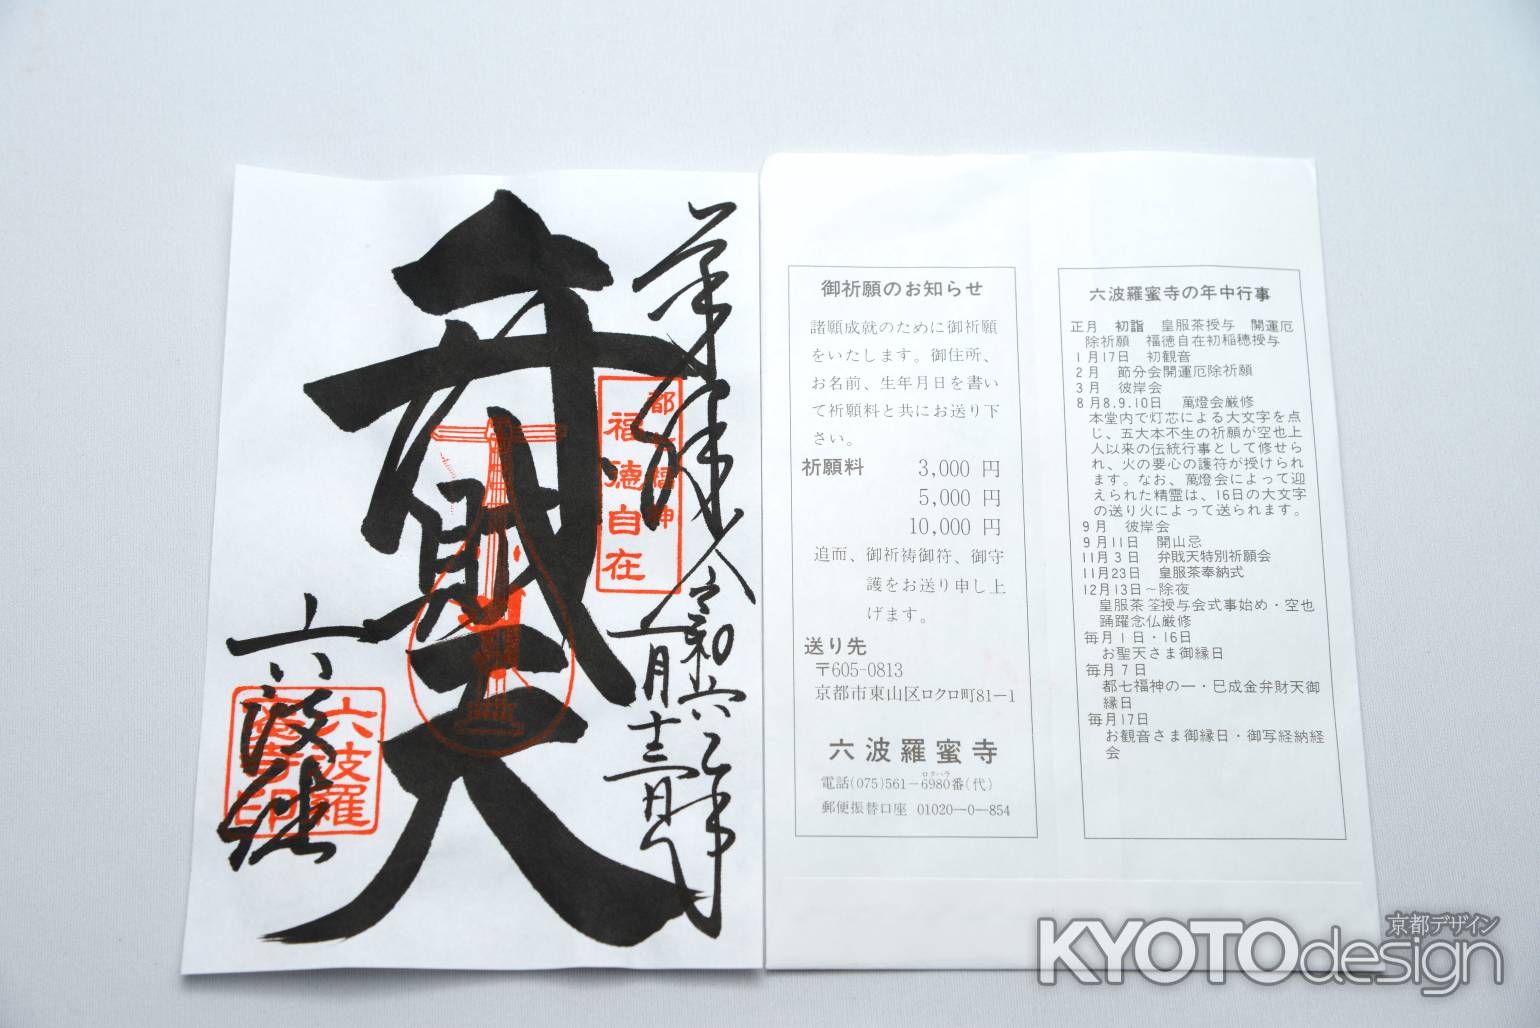 奉拝
令和六年
二月十三日
弁財天
六波羅
都七福神
福徳自在
六波羅
蜜寺印
御祈願のお知らせ
諸願成就のために御祈願
をいたします。御住所、
お名前、生年月日を書い
て祈願料と共にお送り下
さい。
祈願料 3,000 円
5,000 円
10,000 円
追而、御祈祷御符、御守
護をお送り申し上
げます。
送り先
〒605-0813
京都市東山区ロクロ町81−1
六波羅蜜寺
ロクハラ
電話(075)561−6980番(代)
郵便振替口座 01020―0―854
六波羅蜜寺の年中行事
正月 初詣 皇服茶授与 開運厄
除祈願 福徳自在初稲穂授与
1月17日 初観音
2月 節分会開運厄除祈願
3月 彼岸会
8月8.9.10日 萬燈会厳修
本堂内で灯芯による大文字を点
じ、五大本不生の祈願が空也上
人以来の伝統行事として修せら
れ、火の要心の護符が授けられ
ます。なお、萬燈会によって迎
えられた精霊は、16日の大文字
の送り火によって送られます。
9月 彼岸会
9月11日 開山忌
11月3日 弁財天特別祈願会
11月23日 皇服茶奉納式
12月13日〜除夜
皇服茶筌授与会式事始め・空也
踊躍念仏厳修
毎月1日・16日
お聖天さま御縁日
毎月7日
都七福神の一・巳成金弁財天御
縁日
毎月17日
お観音さま御縁日・御写経納経
会
京都デザイン
KYOTOdesign